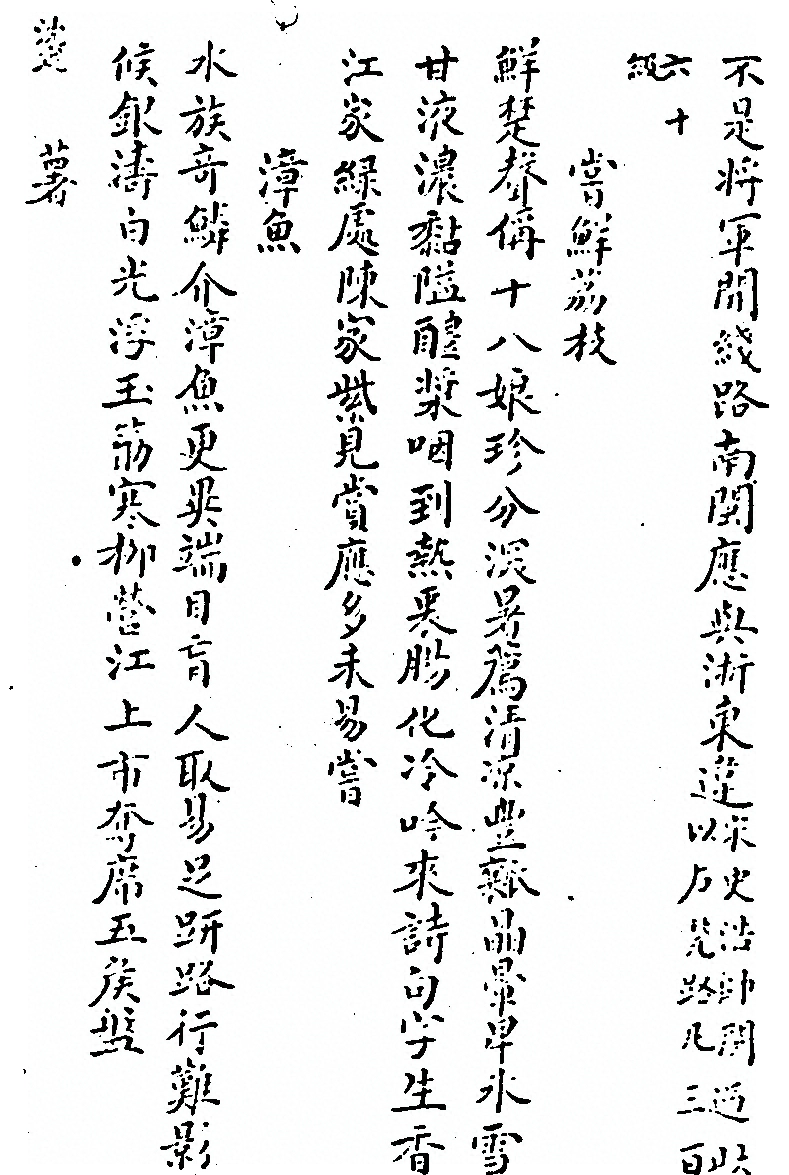 不是將軍開綫路南関應與浙東違宋史浩帥閩過此
以石甃路凡三百
六十
級
嘗鮮荔枝
鮮楚聲偁十八娘珍分溽暑薦清凉豐瓤晶暈卓氷雪
甘液濃黏隘醴漿咽到熱惡腸化冷吟來詩句字生香
江家綠處陳家紫見賞應多未易嘗
漳魚
水族奇鱗介漳魚更異端目盲人取易足趼路行難影
候銀濤白光浮玉筯寒柳營江上市奪席五矦盤
薯